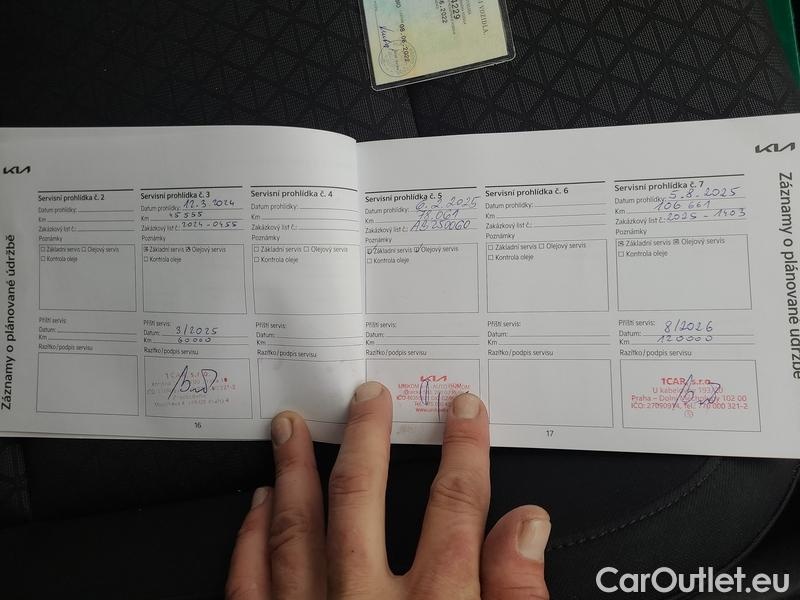 I VOZIDLA.
08.06.2022
KIA
KIA
Záznamy o plánované údržbě
Servisní prohlídka č. 2
Datum prohlídky:
Km
Zakázkový list č.:
Poznámky
☐ Základní servis ☐ Olejový servis
☐ Kontrola oleje
Příští servis:
Datum:
Km
Razítko/podpis servisu
Servisní prohlídka č. 3
Datum prohlídky: 12.3.2024
Km 45 555
Zakázkový list č.: 2024-0455
Poznámky
☒ Základní servis ☒ Olejový servis
☐ Kontrola oleje
Příští servis:
Datum: 3/2025
Km 60000
Razítko/podpis servisu
1CAR, s.r.o.
Servisní prohlídka č. 4
Datum prohlídky:
Km
Zakázkový list č.:
Poznámky
☐ Základní servis ☐ Olejový servis
☐ Kontrola oleje
Příští servis:
Datum:
Km
Razítko/podpis servisu
16
Servisní prohlídka č. 5
Datum prohlídky: 6.2.2025
Km
Zakázkový list č.: AB250060
Poznámky
☑ Základní servis ☑ Olejový servis
☐ Kontrola oleje
Příští servis:
Datum:
Km
Razítko/podpis servisu
KIA
Servisní prohlídka č. 6
Datum prohlídky:
Km
Zakázkový list č.:
Poznámky
☐ Základní servis ☐ Olejový servis
☐ Kontrola oleje
Příští servis:
Datum:
Km
Razítko/podpis servisu
Servisní prohlídka č. 7
Datum prohlídky: 5.8.2025
Km 106 661
Zakázkový list č.: 2025-1403
Poznámky
☒ Základní servis ☒ Olejový servis
☐ Kontrola oleje
Příští servis:
Datum: 8/2026
Km 120000
Razítko/podpis servisu
1CAR, s.r.o.
U kabelovny
Praha – Dolní Měcholupy 102 00
IČO: 27090914, Tel.: 770 000 321-2
17
Záznamy o plánované údržbě
CarOutlet.eu